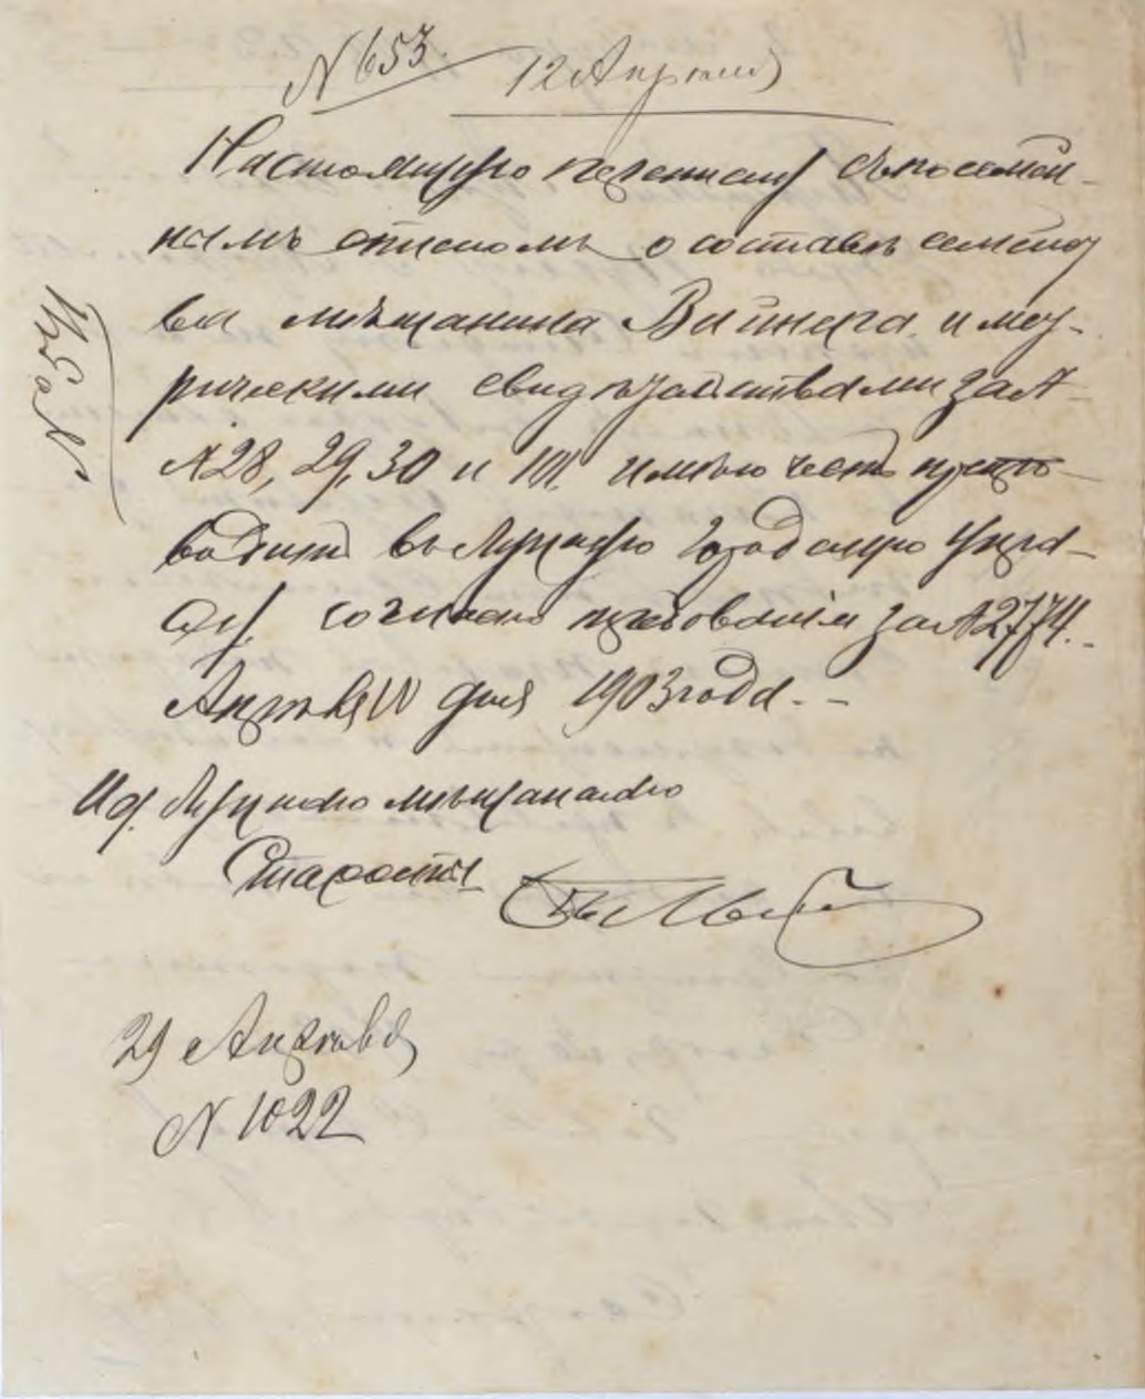 N 653. 12 Апреля
Настоящую переписку съ посемей-
нымъ спискомъ о составе семейст
ва мѣщанина Вайнера и мет-
рическими свидѣтельствами за №
№ 28, 29, 30 и 101 имѣю честь препро-
водить въ Луцкую Городскую Упра-
ву, согласно требованія за № 2774.
Апрѣля дня 1903 года. -
Ид. Луцкаго мѣщанскаго
Старосты
29 Апрѣля
N 1022